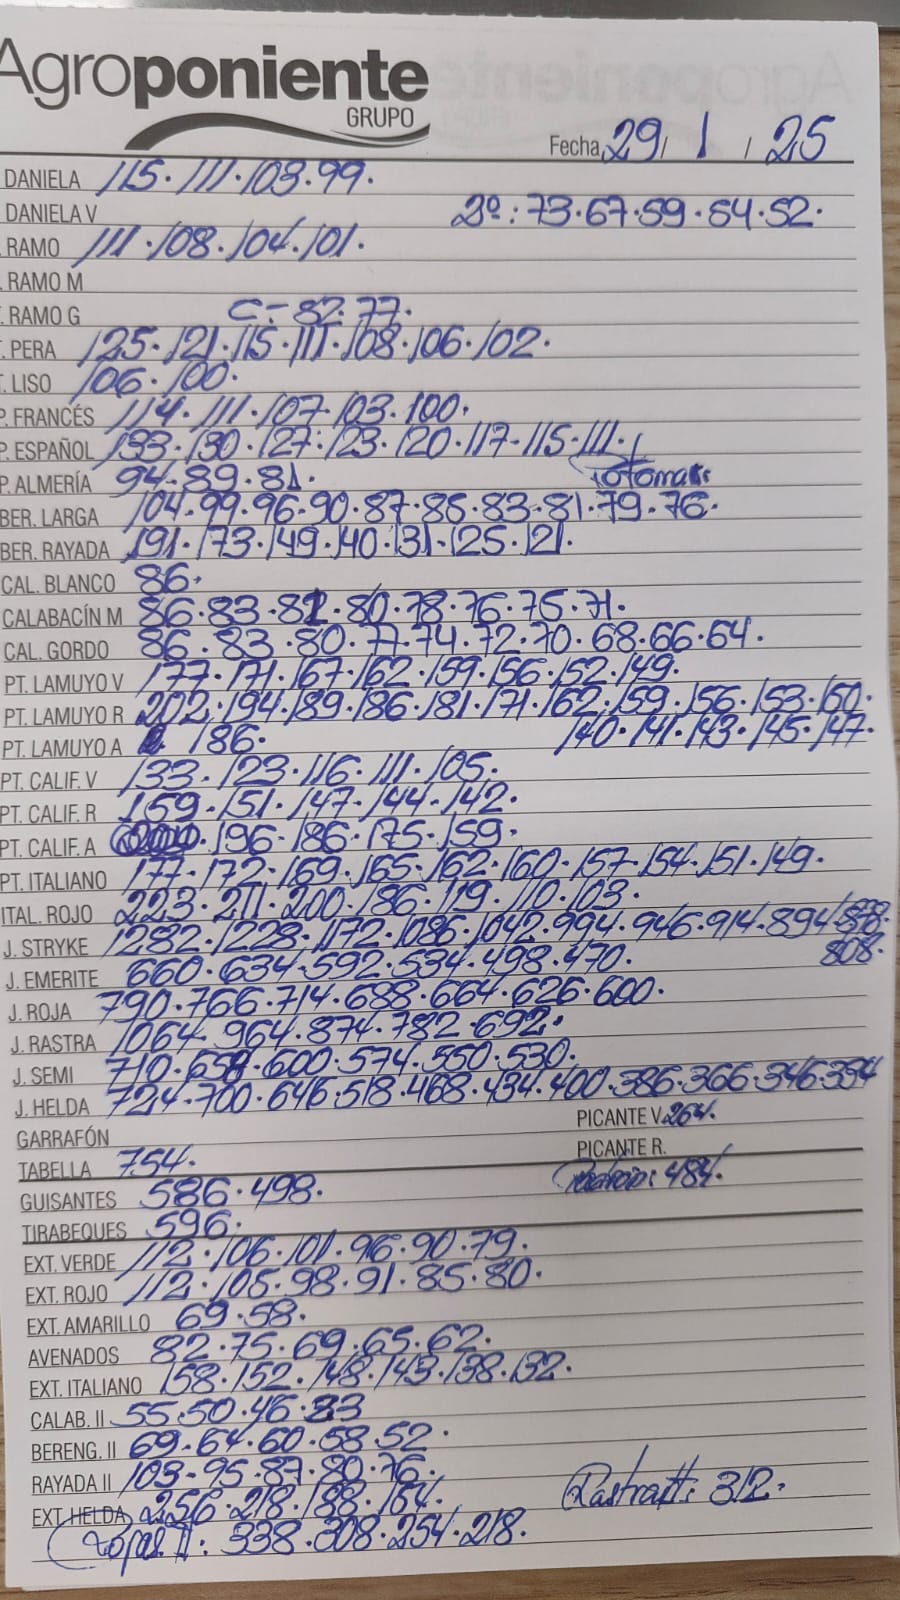 Agroponiente
GRUPO
Fecha 29 / 1 / 25
DANIELA 115. 111. 103. 99.
DANIELA V 2º: 73. 67. 59. 54. 52.
RAMO 111. 108. 104. 101.
RAMO M
RAMO G C- 82. 77.
T. PERA 125. 121. 115. 111. 108. 106. 102.
T. LISO 106. 100.
P. FRANCÉS 114. 111. 107. 103. 100.
P. ESPAÑOL 133. 130. 127. 123. 120. 117. 115. 111.
P. ALMERÍA 94. 89. 81.
BER. LARGA 104. 99. 96. 90. 87. 85. 83. 81. 79. 76.
BER. RAYADA 191. 173. 149. 140. 131. 125. 121.
CAL. BLANCO 86.
CALABACÍN M 86. 83. 82. 80. 78. 76. 75. 71.
CAL. GORDO 86. 83. 80. 77. 74. 72. 70. 68. 66. 64.
PT. LAMUYO V 177. 171. 167. 162. 159. 156. 152. 149.
PT. LAMUYO R 202. 194. 189. 186. 181. 171. 162. 159. 156. 153. 150.
PT. LAMUYO A 186. 140. 141. 143. 145. 147.
PT. CALIF. V 133. 123. 116. 111. 105.
PT. CALIF. R 159. 151. 147. 144. 142.
PT. CALIF. A 196. 186. 175. 159.
PT. ITALIANO 177. 172. 169. 165. 162. 160. 157. 154. 151. 149.
ITAL. ROJO 223. 211. 200. 186. 119. 110. 103.
J. STRYKE 1282. 1228. 1172. 1086. 1042. 994. 946. 914. 894. 878.
808.
J. EMERITE 660. 634. 592. 534. 498. 470.
J. ROJA 790. 766. 714. 688. 664. 626. 600.
J. RASTRA 1064. 964. 874. 782. 692.
J. SEMI 710. 658. 600. 574. 550. 530.
J. HELDA 724. 700. 646. 518. 468. 434. 400. 386. 366. 346. 334
GARRAFÓN PICANTE V. 264.
TABELLA 754. PICANTE R.
GUISANTES 586. 498. 484.
TIRABEQUES 596.
EXT. VERDE 112. 106. 101. 96. 90. 79.
EXT. ROJO 112. 105. 98. 91. 85. 80.
EXT. AMARILLO 69. 58.
AVENADOS 82. 75. 69. 65. 62.
EXT. ITALIANO 158. 152. 148. 143. 138. 132.
CALAB. II 55. 50. 46. 33
BERENG. II 69. 64. 60. 58. 52.
RAYADA II 103. 95. 87. 80. 76.
EXT. HELDA 256. 218. 188. 164. 312.
II: 338. 308. 254. 218.